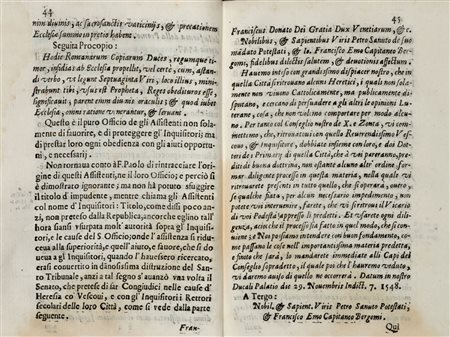 44
non diuinis, ac sacrosanctis vaticinijs, & precationem
Ecclesia summo in pretio habent.
Seguita Procopio:
Hodie Romanorum Copiarum Duces, regumque ti-
mor, subsidia ab Ecclesia propellit, vel certè, cum, astan-
di verbo, vt legunt Septuaginta Viri, locollius, mini-
strabunt tibi, vsus est Propheta, Reges obedituros esse,
significauit, parent enim diuinis oraculis; & quod iubet
Ecclesia, omni ratione venerantur, & seruant.
Questo è il puro Officio de gli Assistenti non sola-
mente di fauorire, e di proteggere gl' Inquisitori; ma
di prestar loro ogni obedienza con gli aiuti opportu-
ni, e necessarij.
Non tornaua conto à F. Paolo di rintracciare l'ori-
gine di questi Assistenti, ne il loro Officio; e perciò si
è dimostrato ignorante; ma non hà potuto sfuggire
il titolo d'impudente, mentre chiama gli Assistenti
col nome d' Inquisitori: Titolo, come dissi poco an-
zi, non preteso dalla Republica, ancorche eglino tal'
hora sansi vsurpata molt' autorità sopra gl' Inquisi-
tori, le cause del S. Officio; onde l'assistenza si ridu-
cea alla superiorità, e quell'aiuto, e fauore, che si do-
uea a gl Inquisitori, quando l' hauessero ricercato,
erasi conuertito in danosissima distruttione del Santo
Tribunale, anzi à tal segno s' auanzò vna volta il
Senato, che pretese di far Congiudici nelle cause d'
Heresia co' Vescoui, e con gl' Inquisitori i Rettori
secolari delle loro Città, come si vede dalla parte
seguente.
Fran-
45
Franciscus Donato Dei Gratia Dux Venetiarum, & c.
Nobilibus, & Sapientibus Viris Petro Sanuto de suo
mādato Potestati, & Io. Francisco Emo Capitaneo Ber-
gomi, fidelibus dilectis salutem, & dilectionis affectum.
Hauemo inteso con grandissimo dispiacer nostro, che in
quella Città si ritrouano alcuni Heretici, i quali non sola-
mente non viuono Cattolicamente, ma publicamente di-
sputano, e cercano di persuadere a gli altri le opinioni Lu-
terane, cosa, che non volemo comportare per modo alcu-
no. Per tanto col Conseglio nostro de X. e Zonta, vi com-
mettemo, che, ritrouatiui con quello Reuerendissimo Ves-
couo, & Inquisitore, dobbiate insieme con loro, e doi Dot-
tori de' Primarij di quella Città, che à voi pareranno, predi-
ti di buona dottrina, non ostante alcuno altr' ordine, for-
mar diligente processo in questa materia, nella quale vi
ritrouarete presenti in tutto quello, che si operarà, ouero,
se qualche fiata, per alcun necessario impedimento, non
potete voi interuenire, farete, che vi si ritroui il Vicario
di voi Podestà appresso li predetti. Et vsarete ogni dili-
genza, acioche il processo sia fatto in quel modo, che si con-
uiene; se Noi possiamo intendere con buon fondamento, co-
me passano le cose nell' importantissima materia predetta,
e finito che sarà, lo mandarete immediate alli Capi del
Conseglio sopradetto, il quale poi che l'haueremo veduto,
vi daremo auiso di quello ne occorrerà. Datum in nostro
Ducali Palatio die 29. Nouembris Indict. 7. 1548.
A Tergo:
Nobil. & Sapient. Viris Petro Sanuto Potestati,
& Francisco Emo Capitaneo Bergomi.
Qui